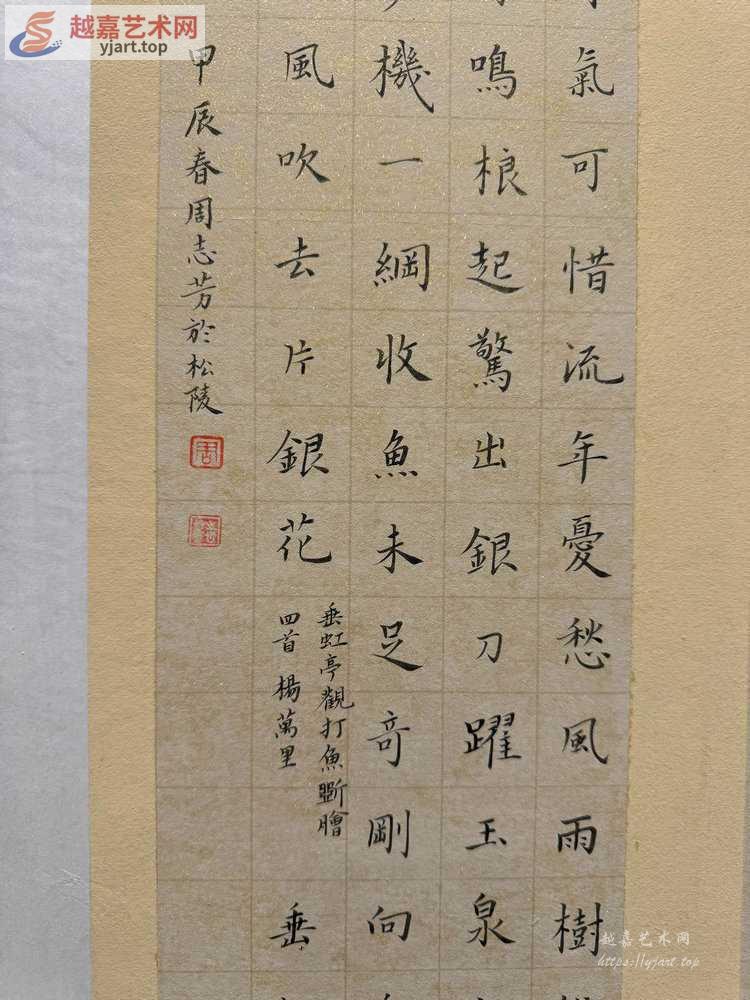 越嘉艺术网
yjart.top
氣可惜流年憂愁風雨樹
鳴桹起驚出銀刀躍玉泉
機一網收魚未足奇剛向
風吹去片銀花
垂虹亭觀打魚斲膾
四首 楊萬里
垂
甲辰春周志芳於松陵
周
越嘉艺术网
https://yjart.top